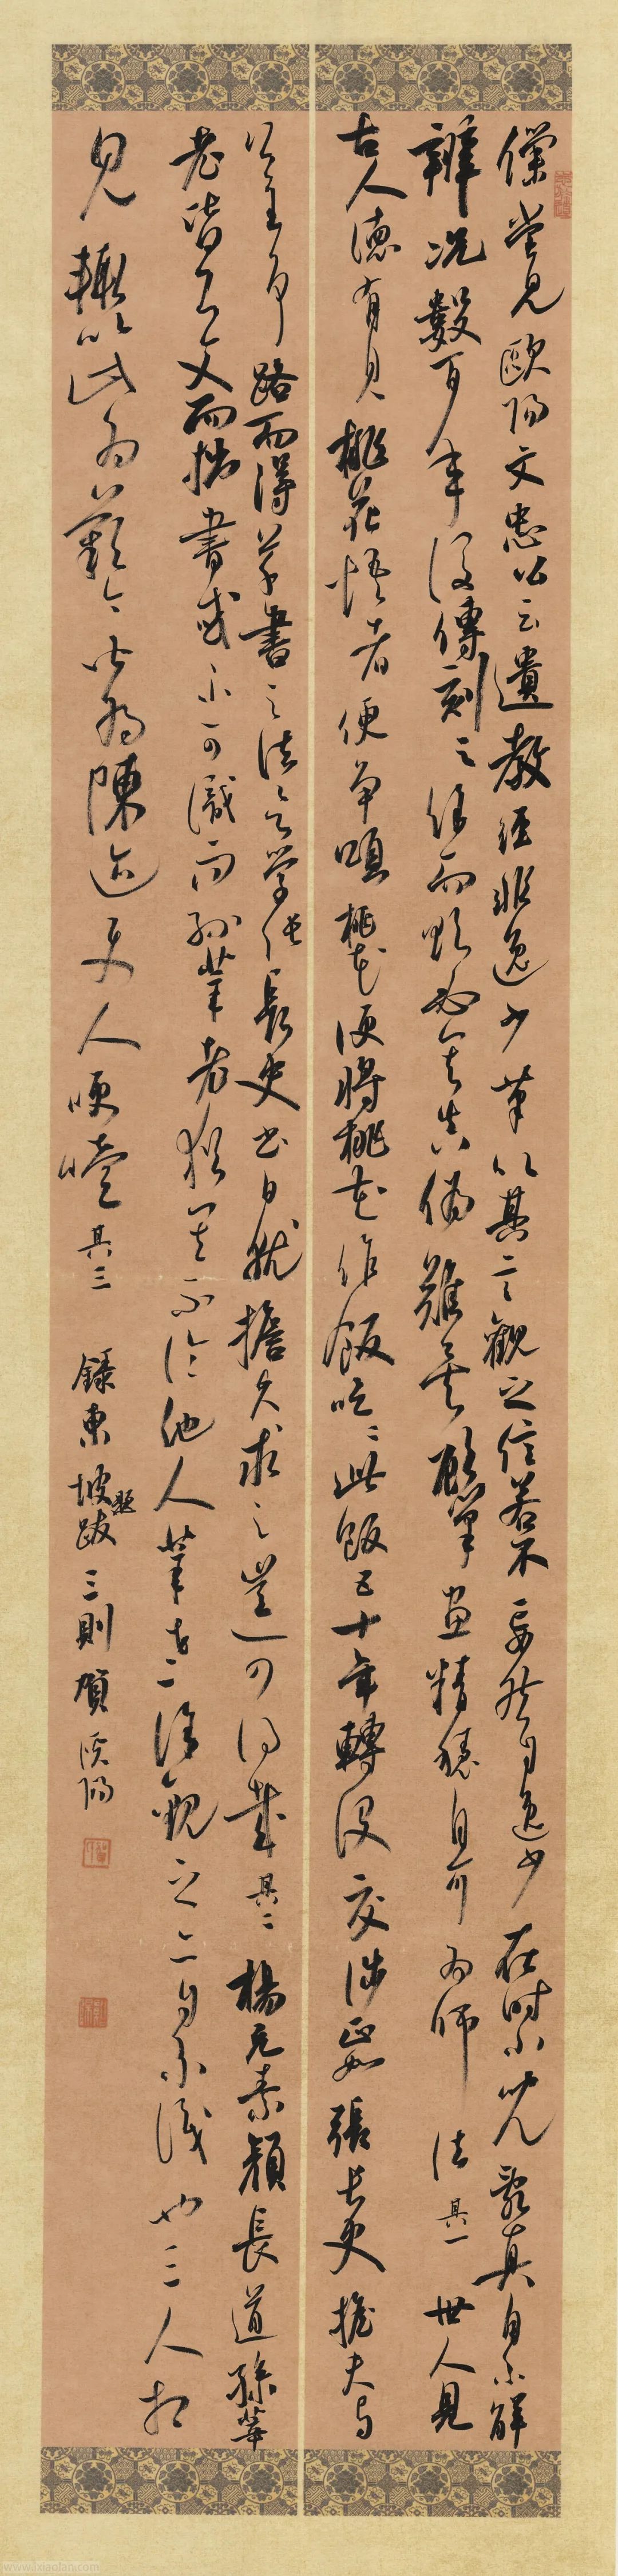 僕嘗見歐陽文忠公云遺教經非逸少筆以其言觀之信若不妄然自逸少在时小兒亂真自不解
辨況數百年後傳刻之餘而欲必其真偽難矣顧筆畫精穩自可為師法其一世人見
古人德有見桃花悟者便争頌桃花便将桃花作飯吃〻此飯五十年轉沒交涉正如張長史擔夫与
公主争路而得草書之法欲学長史書日就擔夫求之豈可得哉其二楊元素顏長道孫莘
老皆工文而拙書或不可識而孫莘老猶甚不論他人莘老徐觀之亦自不識也三人相
見輒以此為歎今皆為陳迹使人哽噎其三錄東坡題跋三則賀溪陽